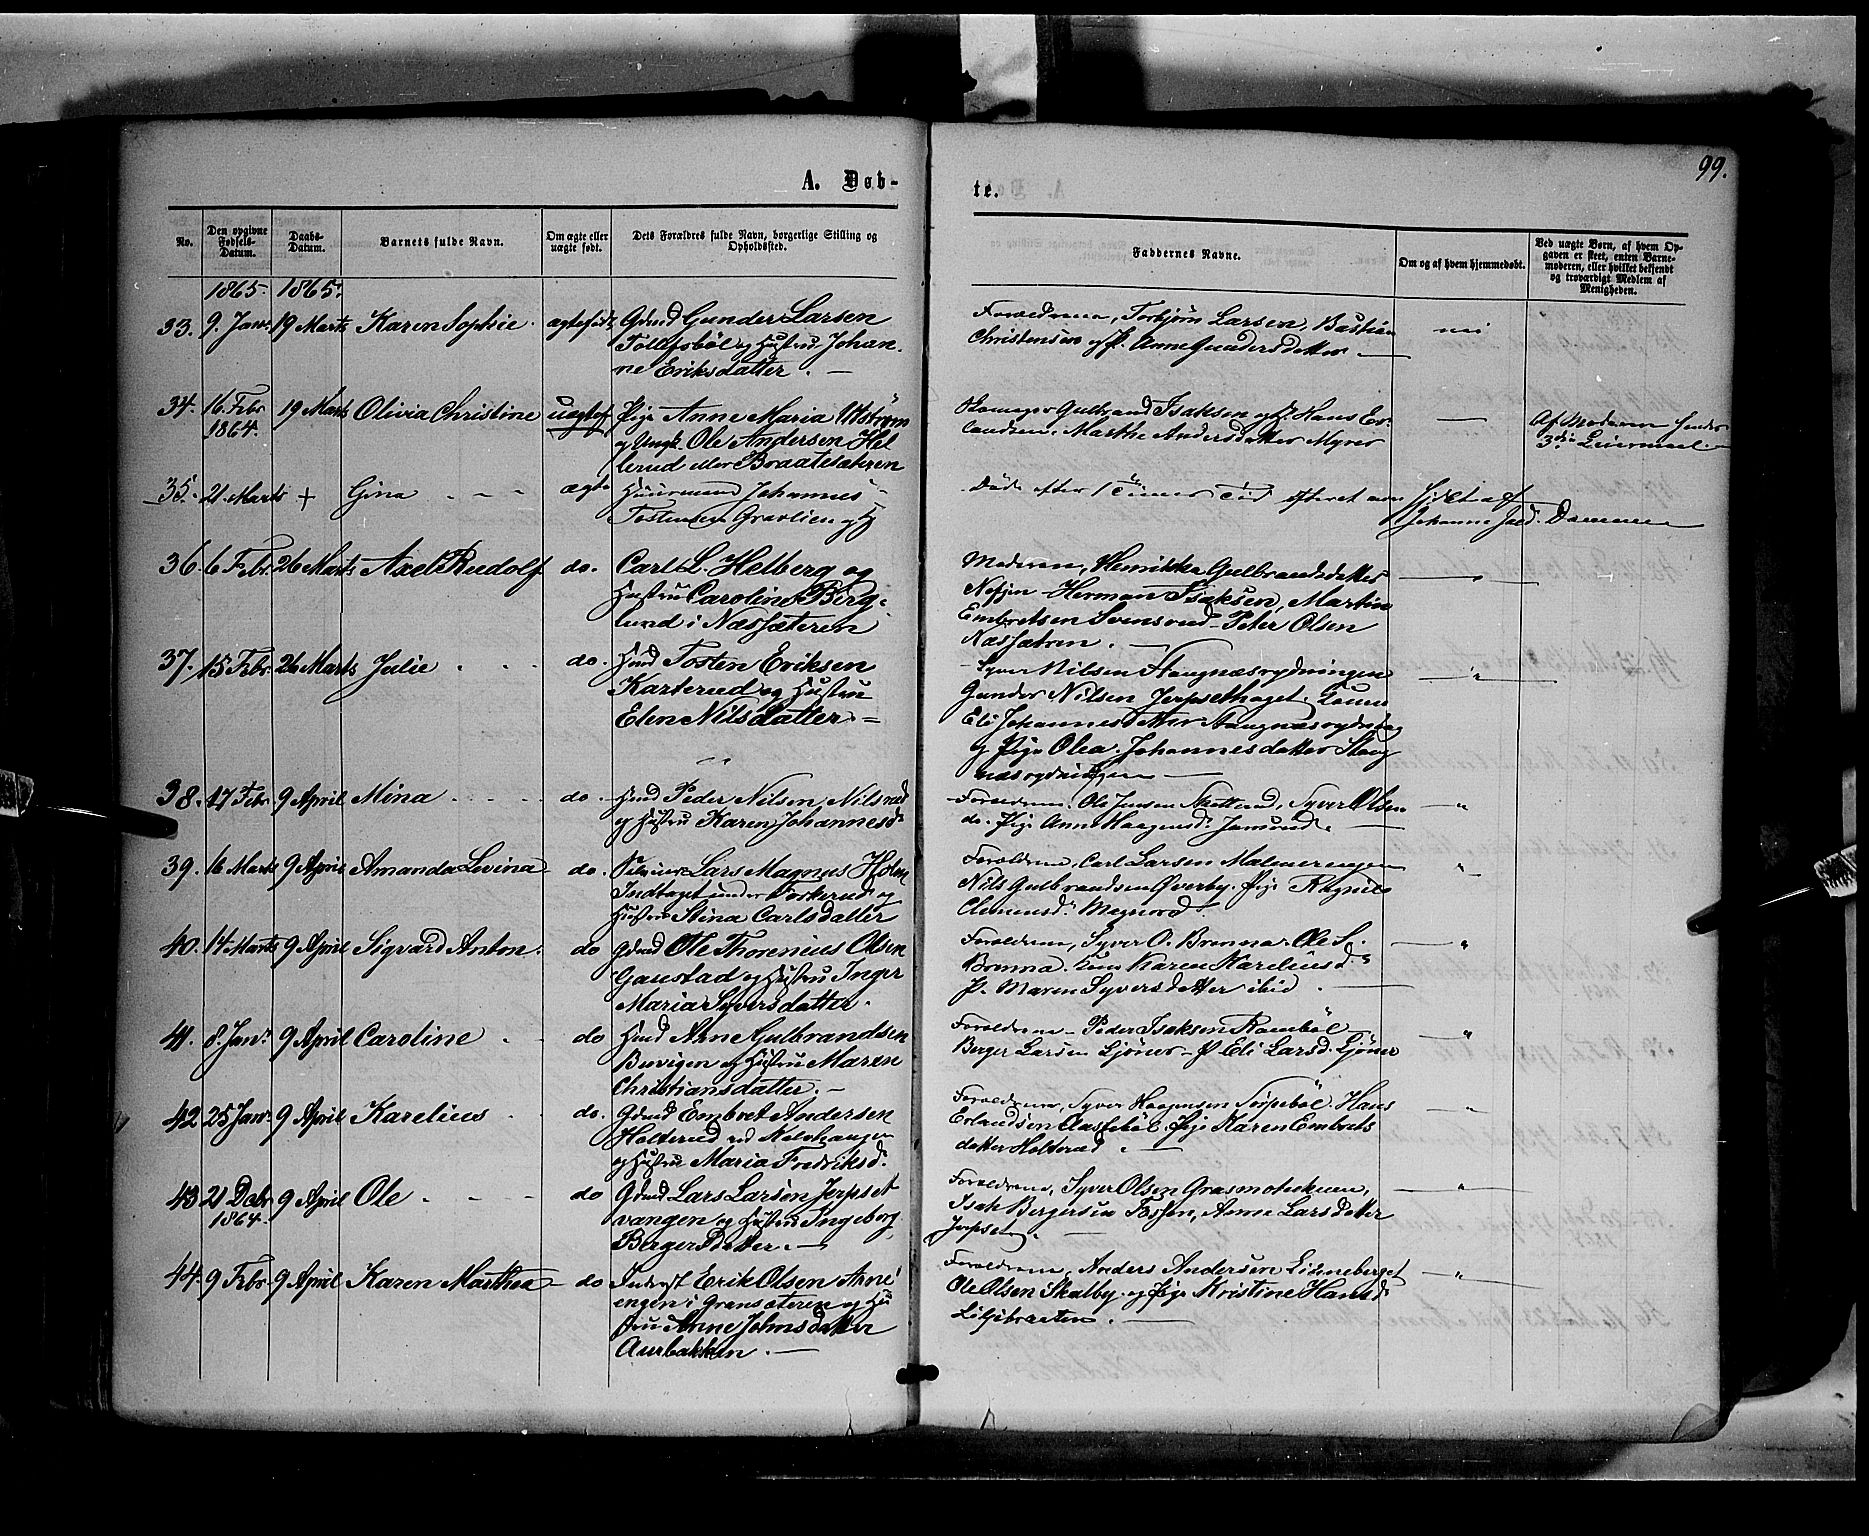 99.
A. Døb-
te.
No.
Den opgivne Fødsels-Datum.
Daabs-Datum.
Barnets fulde Navn.
Om ægte eller uægte født.
Dets Forældres fulde Navn, borgerlige Stilling og Opholdssted.
Faddernes Navne.
Om og af hvem hjemmedøbt.
Ved uægte Børn, af hvem Opgaven er skeet, enten Barnemoderen, eller hvilket bekjendt og troværdigt Medlem af Menigheden.
1865. 1865.
33. 9. Janr 19 Marts Karen Sophie. ægtefødt Gdmd Gunder Larsen
Tollefsbøl og Hustru Johan-
ne Eriksdatter. —
Forældrene, Torbjørn Larsen, Bastian nei
Christensen og P. Anne Gundersdatter —
34. 16 Febr 19 Marts Olivia Christine uægtef Pige Anne Maria
1864. og Ungk Ole Andersen Hel-
lerud eller Braatesæteren
Skomager Gulbrand Isaksen og Hans Er- —
landsen, Marthe Andersdatter Myrer
Af Moderen hendes
3die Leiermaal. —
35. 21 Marts + Gina - - - ægte Huusmand Johannes
Tostensen Gravlien og H
Døde efter 1 Times Tid
Johanne
36. 6 Febr. 26 Marts Axel Rudolf do. Carl L. Helberg og
Hustru Caroline Berg-
lund i Næssæteren
Moderen, Henrikke Gulbrandsdatter —
Herman Isaksen, Martin
Embretsen Svensrud - Peter Olsen
Næssætren. —
37. 15 Febr. 26 Marts Julie do. Hmd Tosten Eriksen
Karterud og Hustru
Elen Nilsdatter. =
Syver Nilsen Haugnæsrydningen — " —
Gunder Nilsen Jerpsethaget. Kone
Eli Johannesdatter
og Pige Olea Johannesdatter Haug-
næsrydningen —
38. 17 Febr 9 April Mina do. Hmd Peder Nilsen Nilsrud
og Hustru Karen Johannesd.
Forældrene, Ole Jensen Skotterud, Syver Olsen — "
do. Pige Anne Haagensd. —
39. 16 Marts 9 April Amanda Lovina do. Lars Magnus Holm
Indtaget under Torkerud og
Hustru Stina Carlsdatter
Forældrene, Carl Larsen Malmerengen "
Nils Gulbrandsen Øverby. Pige Ragnil
Clemensd. Magnord.
40. 14 Marts 9 April Sigvard Anton. do Gdmd Ole Thorenius Olsen
Gaustad og Hustru Inger
Maria Syversdatter.
Forældrene, Syver O. Brenna. Ole S. — "
Brenna. Kone Karen Kareliusd.
P. Maren Syversdatter ibid. —
41. 8. Janr. 9 April Caroline do Hmd Arne Gulbrandsen
Buvigen og Hustru Maren
Christiansdatter. —
Forældrene - Peder Isaksen Rambøl — "
Berger Larsen Sjøner - P. Eli Larsd. Sjøner
42 25 Janr. 9 April Karelius do. Gdmd Embret Andersen
Holterud ved
og Hustru Maria Fredriksd.
Forældrene, Syver Haagensen Torpebøl. Hans — "
Erlandsen Aastebøl. Pige Karen Embrets
datter Holterud. —
43 21 Debr 9 April Ole - - - do Gdmd Lars Larsen Jerpset
1864. vangen og Hustru Ingeborg
Bergersdatter. —
Forældrene, Syver Olsen Grasmobekken, — "
Isak Bergersen Fossen, Anne Larsdatter
Jerpset. —
44. 9 Febr 9 April Karen Marthea do Inderst Erik Olsen Arne-
engen i Gransæteren og Hu
stru Anne Johnsdatter
Aurbakken. —
Forældrene, Anders Andersen Linneberget — "
Ole Olsen Skalby. og Pige Kristine Hansd
Liljibraaten. —